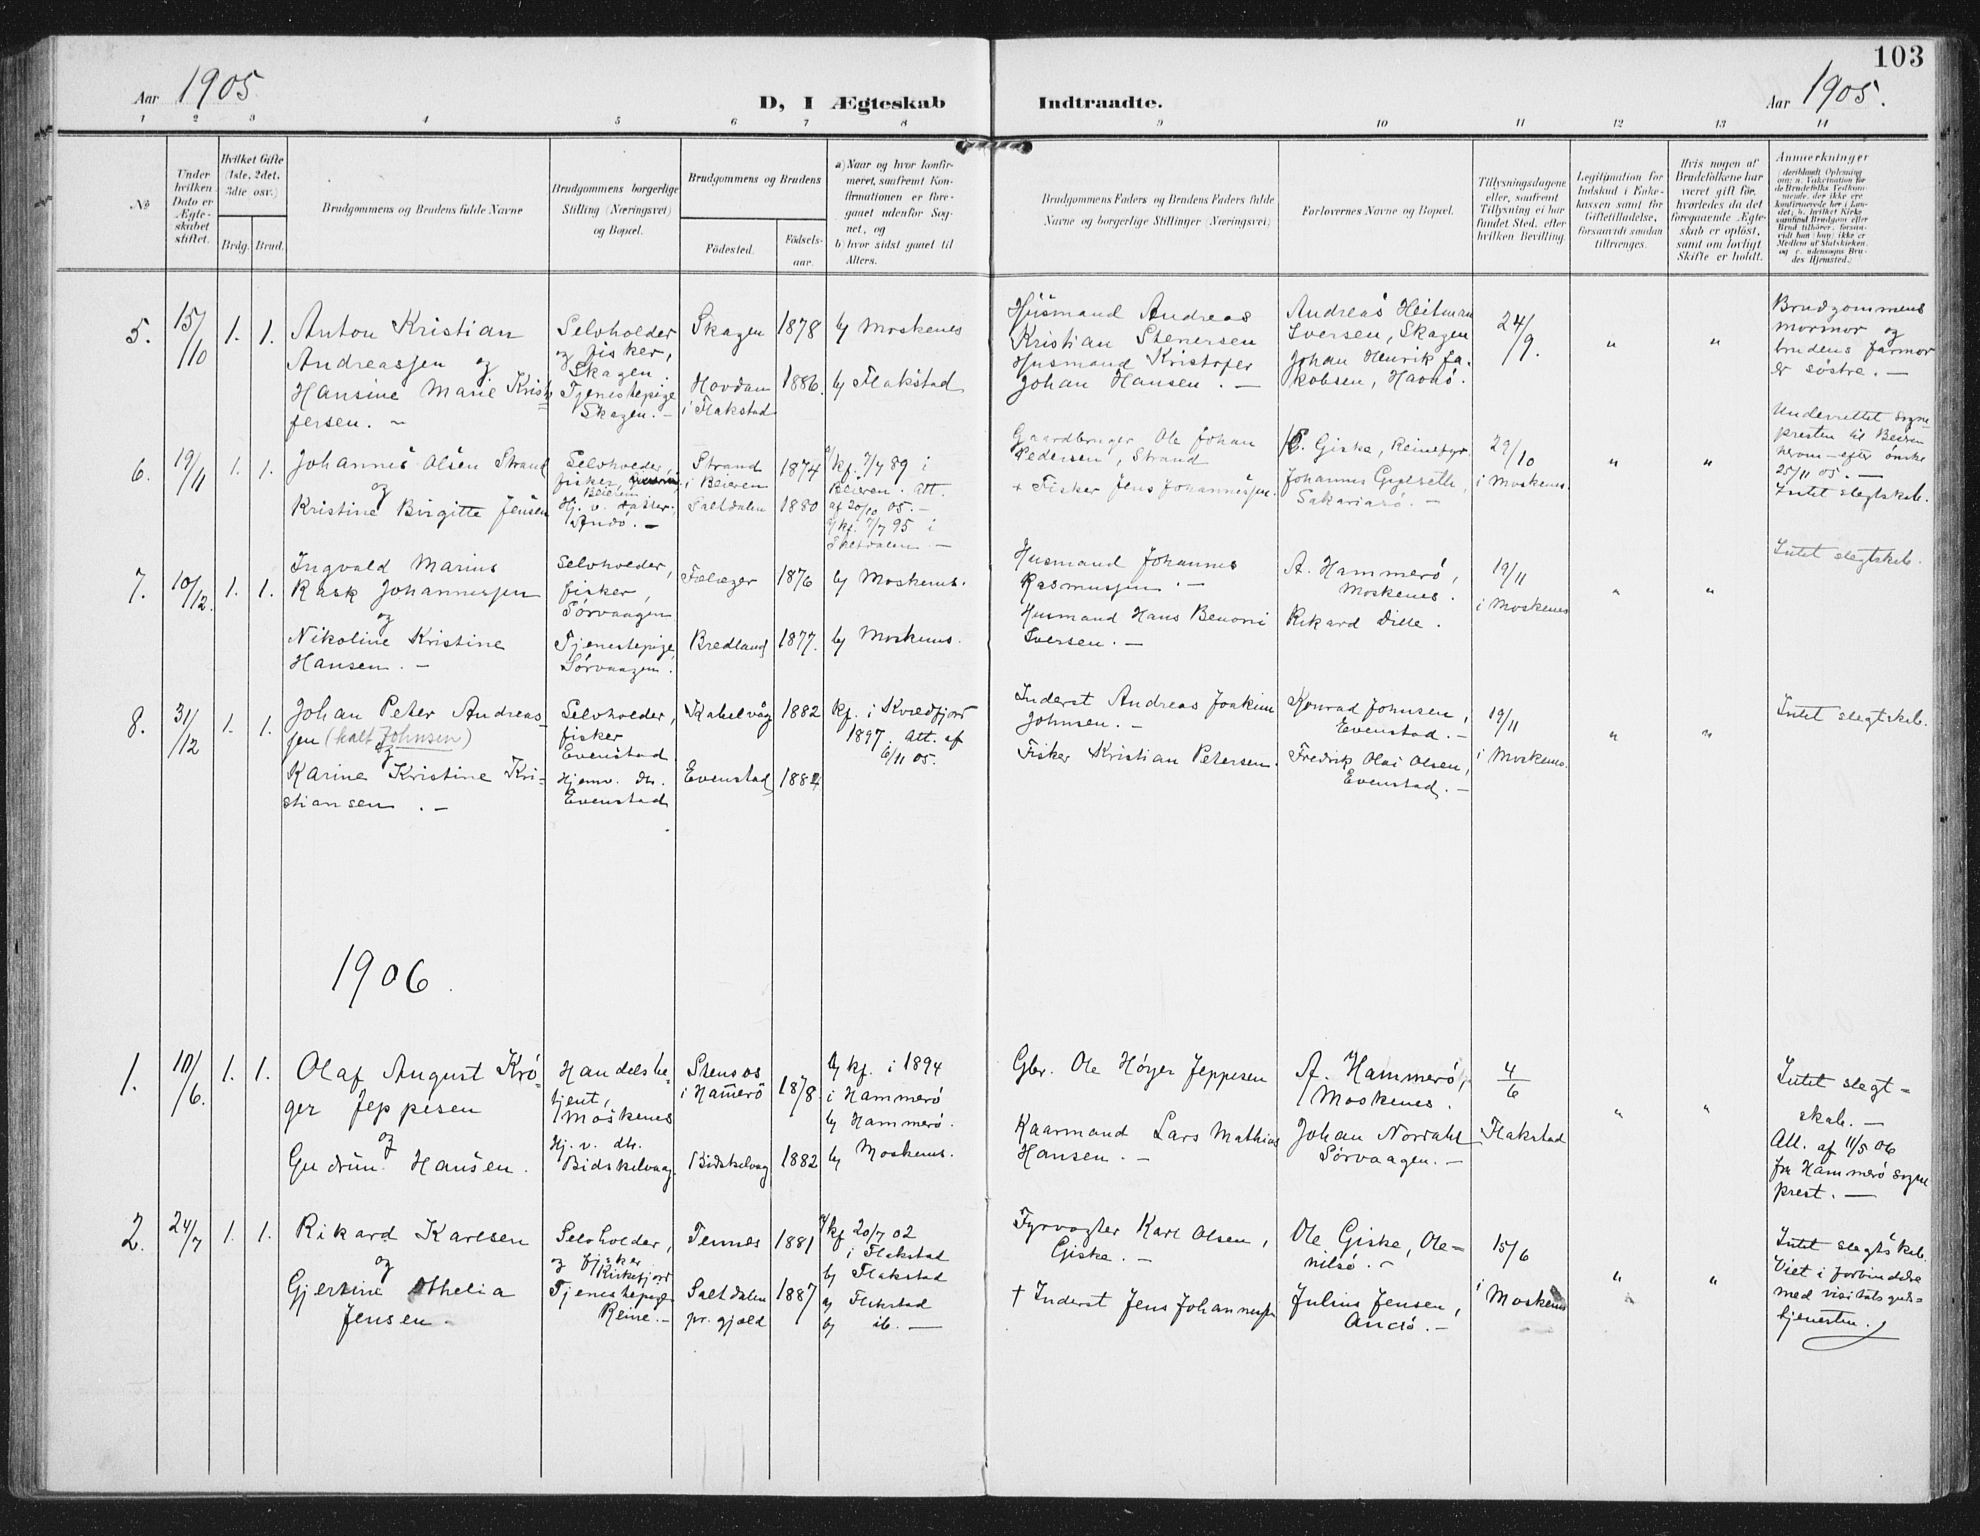 103
Aar 1905
D, I Ægteskab Indtraadte.
Aar 1905.
1 2 3 4 5 6 7 8 9 10 11 12 13 14
No
Under hvilken Dato er Ægteskabet stiftet.
Hvilket Gifte (1ste, 2det, 3die osv.)
Brdg. Brud.
Brudgommens og Brudens fulde Navne
Brudgommens borgerlige Stilling (Næringsvei) og Bopæl.
Brudgommens og Brudens
Födested.
Födselsaar.
a) Naar og hvor konfirmeret, saafremt Konfirmationen er foregaaet udenfor Sognet, og
b) hvor sidst gaaet til Alters.
Brudgommens Faders og Brudens Faders fulde Navne og borgerlige Stillinger (Næringsvei)
Forlovernes Navne og Bopæl.
Tillysningsdagene eller, saafremt Tillysning ei har fundet Sted, efter hvilken Bevilling.
Legitimation for Indskud i Enkekassen samt for Giftetilladelse, forsaavidt saadan tiltrænges.
Hvis nogen af Brudefolkene har været gift før, hvorledes da det foregaaende Ægteskab er oplöst, samt om lovligt Skifte er holdt.
Anmerkninger
5. 15/10 1. 1.
Anton Kristian
Andreassen og
Hansine Marie Kristofersen. –
Selvholder
og fisker,
Skagen.
Tjenestepige
Skagen. –
Skagen 1878
Hovdan
i Flakstad 1886.
b) Moskenes
b) Flakstad
Husmand Andreas
Kristian Stenersen
Husmand Kristofer
Johan Hansen. –
Andreas Heitman
Iversen, Skagen
Johan Henrik Jakobsen, Havnö.
24/9.
" "
Brudgommens
mormor og
brudens farmor
er søstre. –
6. 19/11 1. 1.
Johannes Olsen Strand
og
Kristine Birgitte Jensen
Selvholder,
fisker,
Beieren
Hj. v. datter,
Andö. –
Strand
i Beieren 1874
Saltdalen 1880
a) kf. 7/7 89 i
Beieren. Att.
af 20/10 05. –
a) kf. 7/7 95 i
Saltdalen –
Gaardbruger Ole Johan
Pedersen, Strand
+ Fisker Jens Johannessen.
E. Giske, Reinefyr.
Johannes Gylseth,
Sakariasö. –
29/10
i Moskenes.
" "
Underrettet sogne
presten til Beieren
herom – efter ønske
25/11 05. –
Intet slegtskab.
7. 10/12. 1. 1.
Ingvald Marius
Rask Johannessen
og
Nikoline Kristine
Hansen. –
Selvholder,
fisker,
Sörvaagen
Tjenestepige,
Sörvaagen.
1876
Bredland 1877.
b) Moskenes.
b) Moskenes.
Husmand Johannes
Rasmussen. –
Husmand Hans Benoni
Iversen. –
A. Hammerö,
Moskenes.
Rikard Dille.
19/11
i Moskenes
" "
Intet slegtskab.
8. 31/12 1. 1.
Johan Peter Andreassen (kalt Johnsen)
og
Karine Kristine Kristiansen. –
Selvholder,
fisker
Evenstad
Hjemv. dt.
Evenstad
Kabelvåg 1882
Evenstad 1882
kf. i Kvædfjord
1897. Att. af
6/11 05.
Inderst Andreas Joakim
Johnsen. –
Fisker Kristian Petersen.
Konrad Johnsen,
Evenstad. –
Fredrik Olai Olsen,
Evenstad. –
19/11
i Moskenes.
" "
Intet slegtskab.
1906.
1. 10/6. 1. 1.
Olaf August Kröger Jeppesen
og
Gudrun Hansen.
Handelsbetjent,
Moskenes
Hj. v. dt.
Bidskelvaag.
i Hamerö 1878
Bidskelvag 1882
a) kf. i 1894
i Hammerö
b) Hammerö.
b) Moskenes.
Gbr. Ole Höyer Jeppesen
Kaarmand Lars Mathias
Hansen. –
A. Hammerö,
Moskenes.
Johan Nordahl
Sörvaagen. –
4/6
Flakstad
" "
Intet slegtskab. –
Att. af 11/5 06
fra Hammerö sogneprest. –
2. 24/7 1. 1.
Rikard Karlsen
og
Gjertine Othelia
Jensen. –
Selvholder,
og fisker
Kirkefjord
Tjenestepige
Reine. –
Tennes 1881
Saltdalen
pr. gjæld 1887
a) kf 20/7 02
i Flakstad
b) Flakstad
a) Flakstad
b) ib. –
Fyrvogter Karl Olsen,
Giske. –
+ Inderst Jens Johannessen
Ole Giske, Olenilsö. –
Julius Jensen,
Andö. –
15/6
i Moskenes
" "
Intet slegtskab.
Viet i forbindelse
med visitatsguds=
tjenesten.